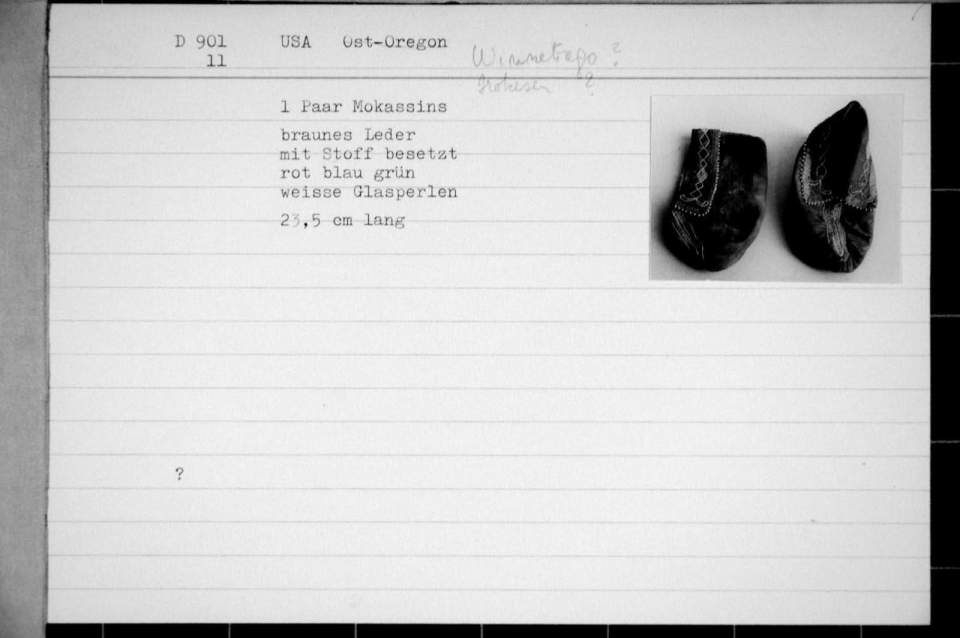 D 901 USA Ost-Oregon
11
Winnebago ?
Irokesen ?
1 Paar Mokassins
braunes Leder
mit Stoff besetzt
rot blau grün
weisse Glasperlen
23,5 cm lang
?